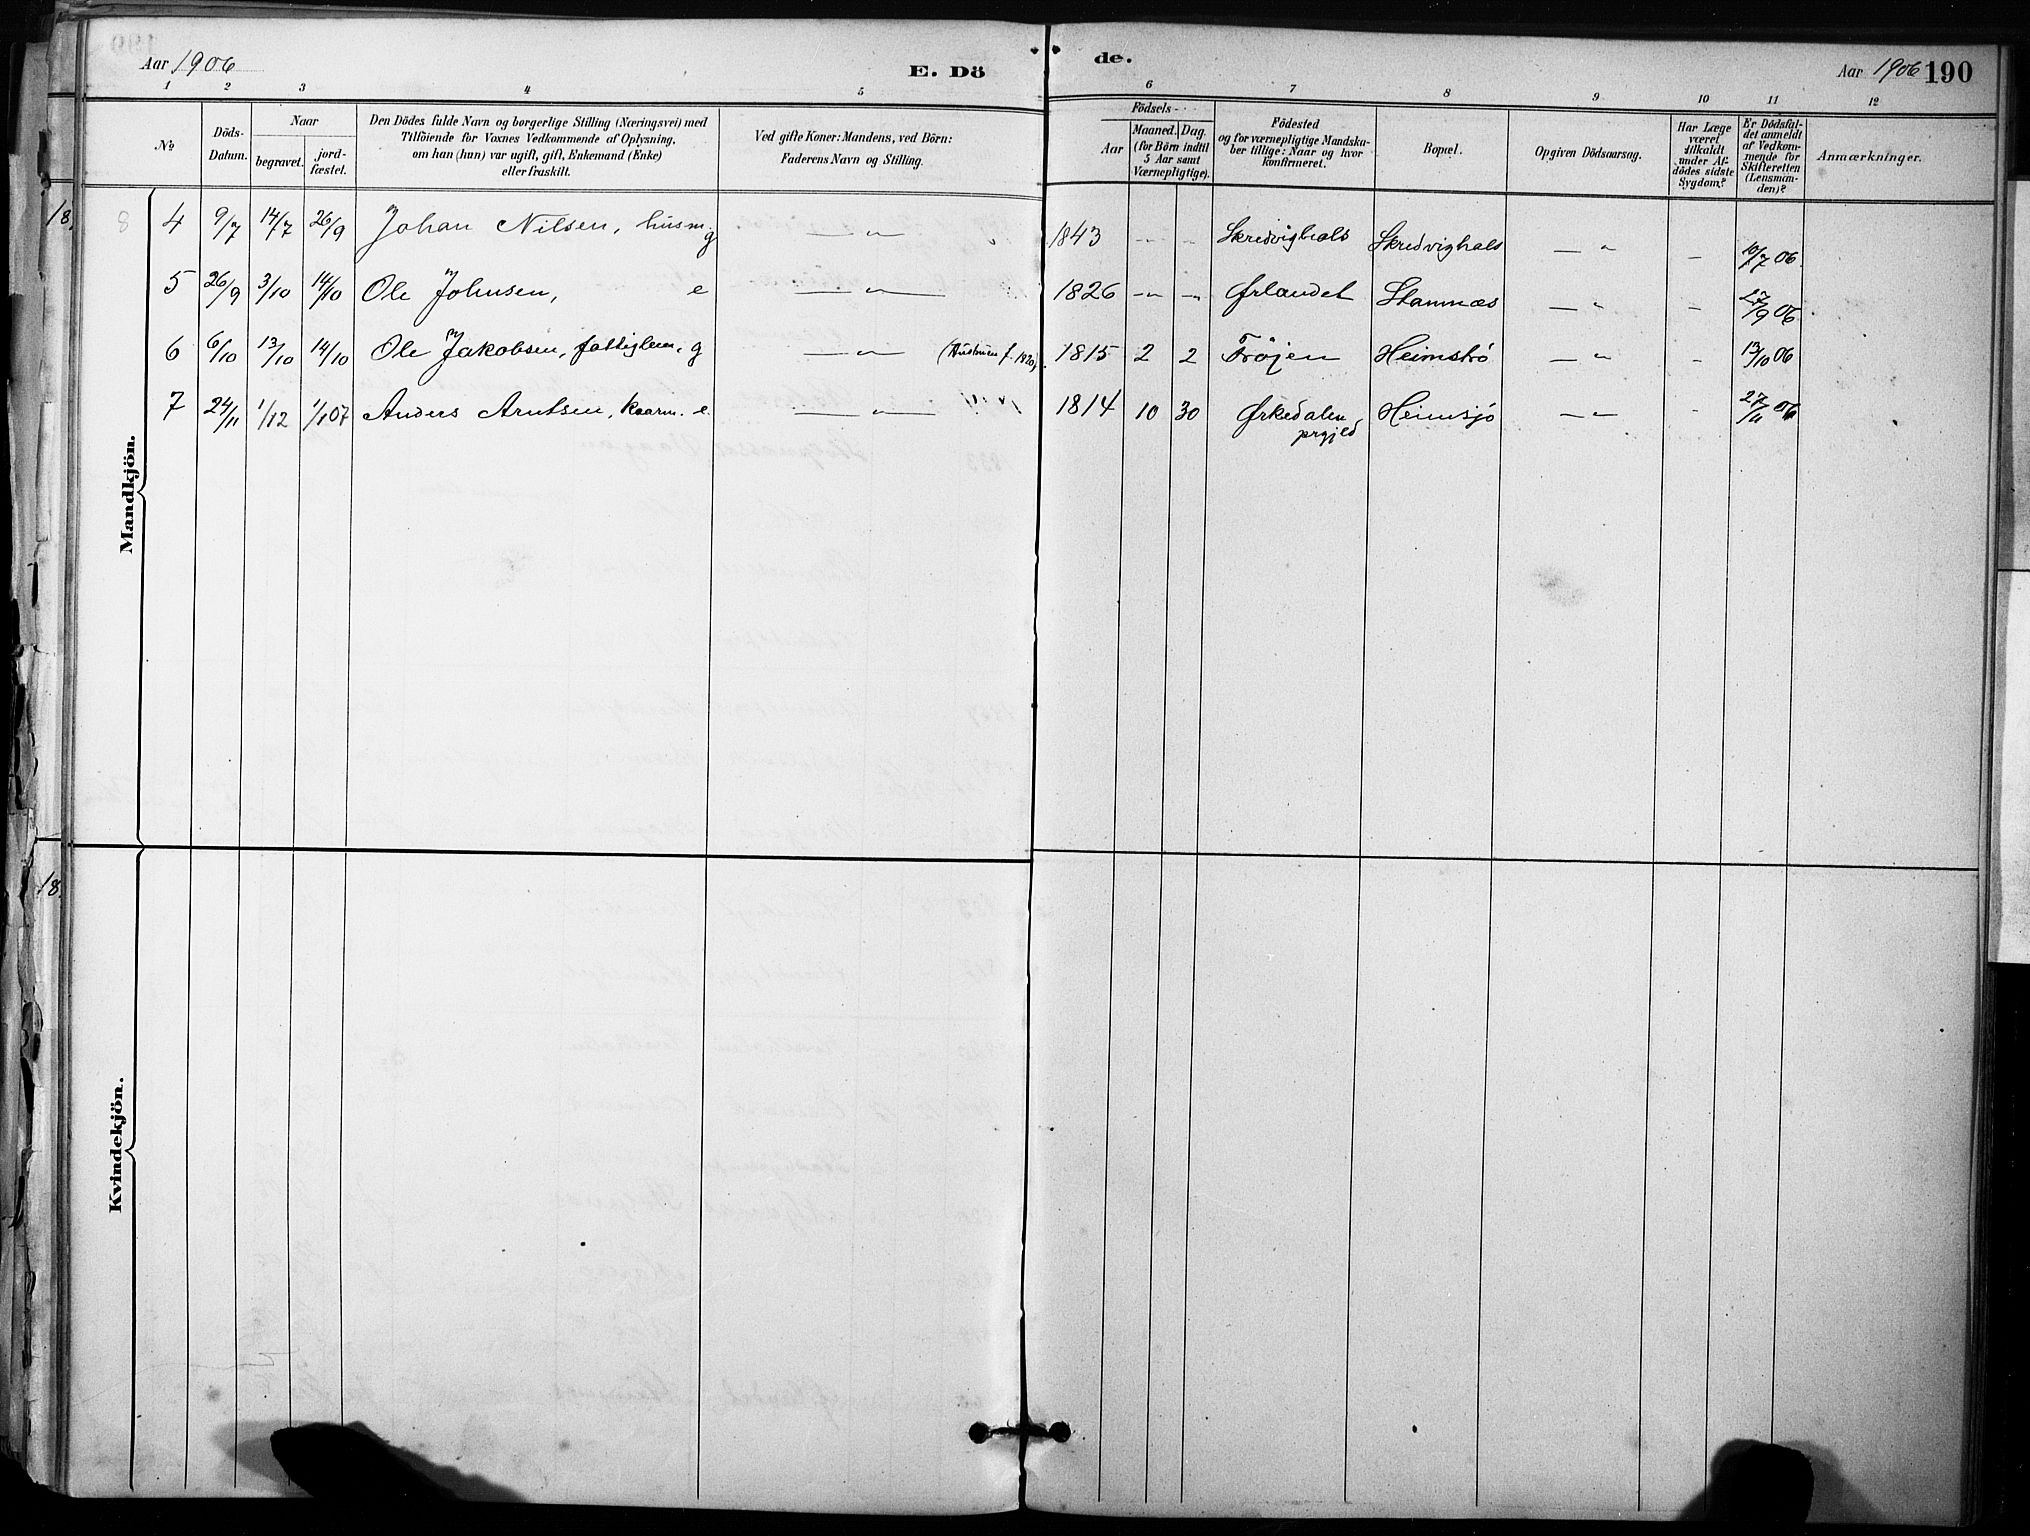 Aar 1906
E. Dö
de.
Aar 1906 190
1 2 3 4 5 6 7 8 9 10 11 12
No
Döds-
Datum.
Naar
begravet.
jord-
fæstet.
Den Dödes fulde Navn og borgerlige Stilling (Næringsvei) med
Tilföiende for Voxnes Vedkommende af Oplysning,
om han (hun) var ugift, gift, Enkemand (Enke)
eller fraskilt.
Ved gifte Koner: Mandens, ved Börn:
Faderens Navn og Stilling.
Födsels-
Aar
Maaned. Dag.
(for Börn indtil
5 Aar samt
Værnepligtige).
Födested
og for værnepligtige Mandska-
ber tillige: Naar og hvor
konfirmeret.
Bopæl.
Opgiven Dödsaarsag.
Har Læge
været
tilkaldt
under Af-
dödes sidste
Sygdom?
Er Dödsfal-
det anmeldt
af Vedkom-
mende for
Skifteretten
(Lensman-
den)?
Anmærkninger.
18.
8
4 9/7 14/7 26/9 Johan Nilsen, husm. g —„— 1843 -„- „ Skredvighals Skredvighals —„ - 10/7 06.
5 26/9 3/10 14/10 Ole Johnsen, e —„— 1826 -„- -„ Ørlandet Stamnæs —„ - 27/9 06.
6 6/10 13/10 14/10 Ole Jakobsen, fattiglem, g —„— (Hustruen f. 1820) 1815 2 2 Frøjen Heimstrø —„ - 13/10 06
7 24/11 1/12 1/1 07 Anders Arntsen, kaarm. e. —„— 1814 10 30 Ørkedalen Heimsjø —„— - 27/11 06
prgjeld
Mandkjön.
18.
Kvindekjön.